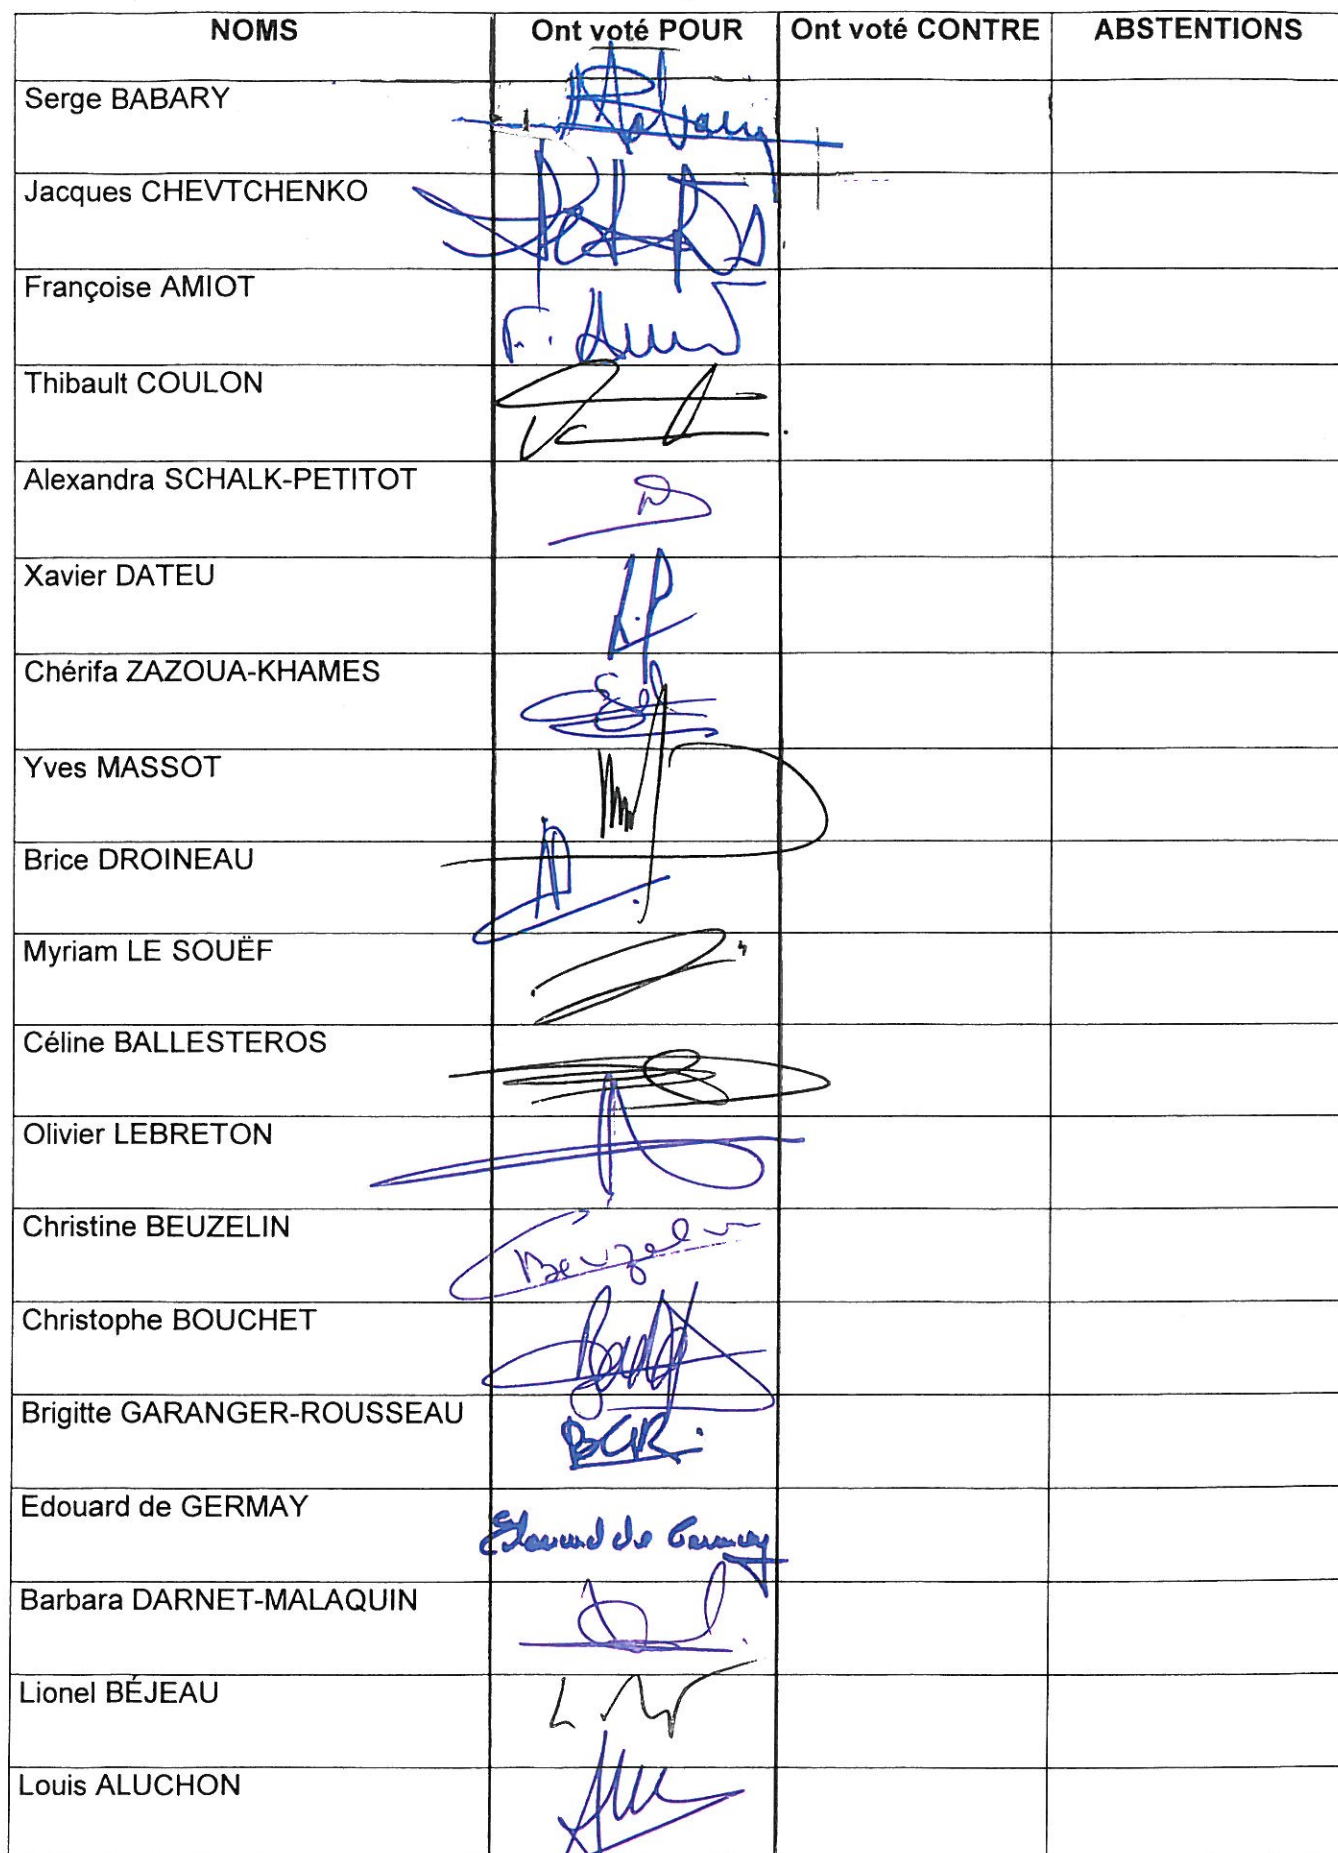 NOMS Ont voté POUR Ont voté CONTRE ABSTENTIONS
Serge BABARY
Jacques CHEVTCHENKO
Françoise AMIOT
F. Amiot
Thibault COULON
Alexandra SCHALK-PETITOT
Xavier DATEU
Chérifa ZAZOUA-KHAMES
Yves MASSOT
Brice DROINEAU
Myriam LE SOUËF
Céline BALLESTEROS
Olivier LEBRETON
Christine BEUZELIN
Beuzelin
Christophe BOUCHET
Brigitte GARANGER-ROUSSEAU
BGR
Edouard de GERMAY
Edouard de Germay
Barbara DARNET-MALAQUIN
Lionel BÉJEAU
Louis ALUCHON